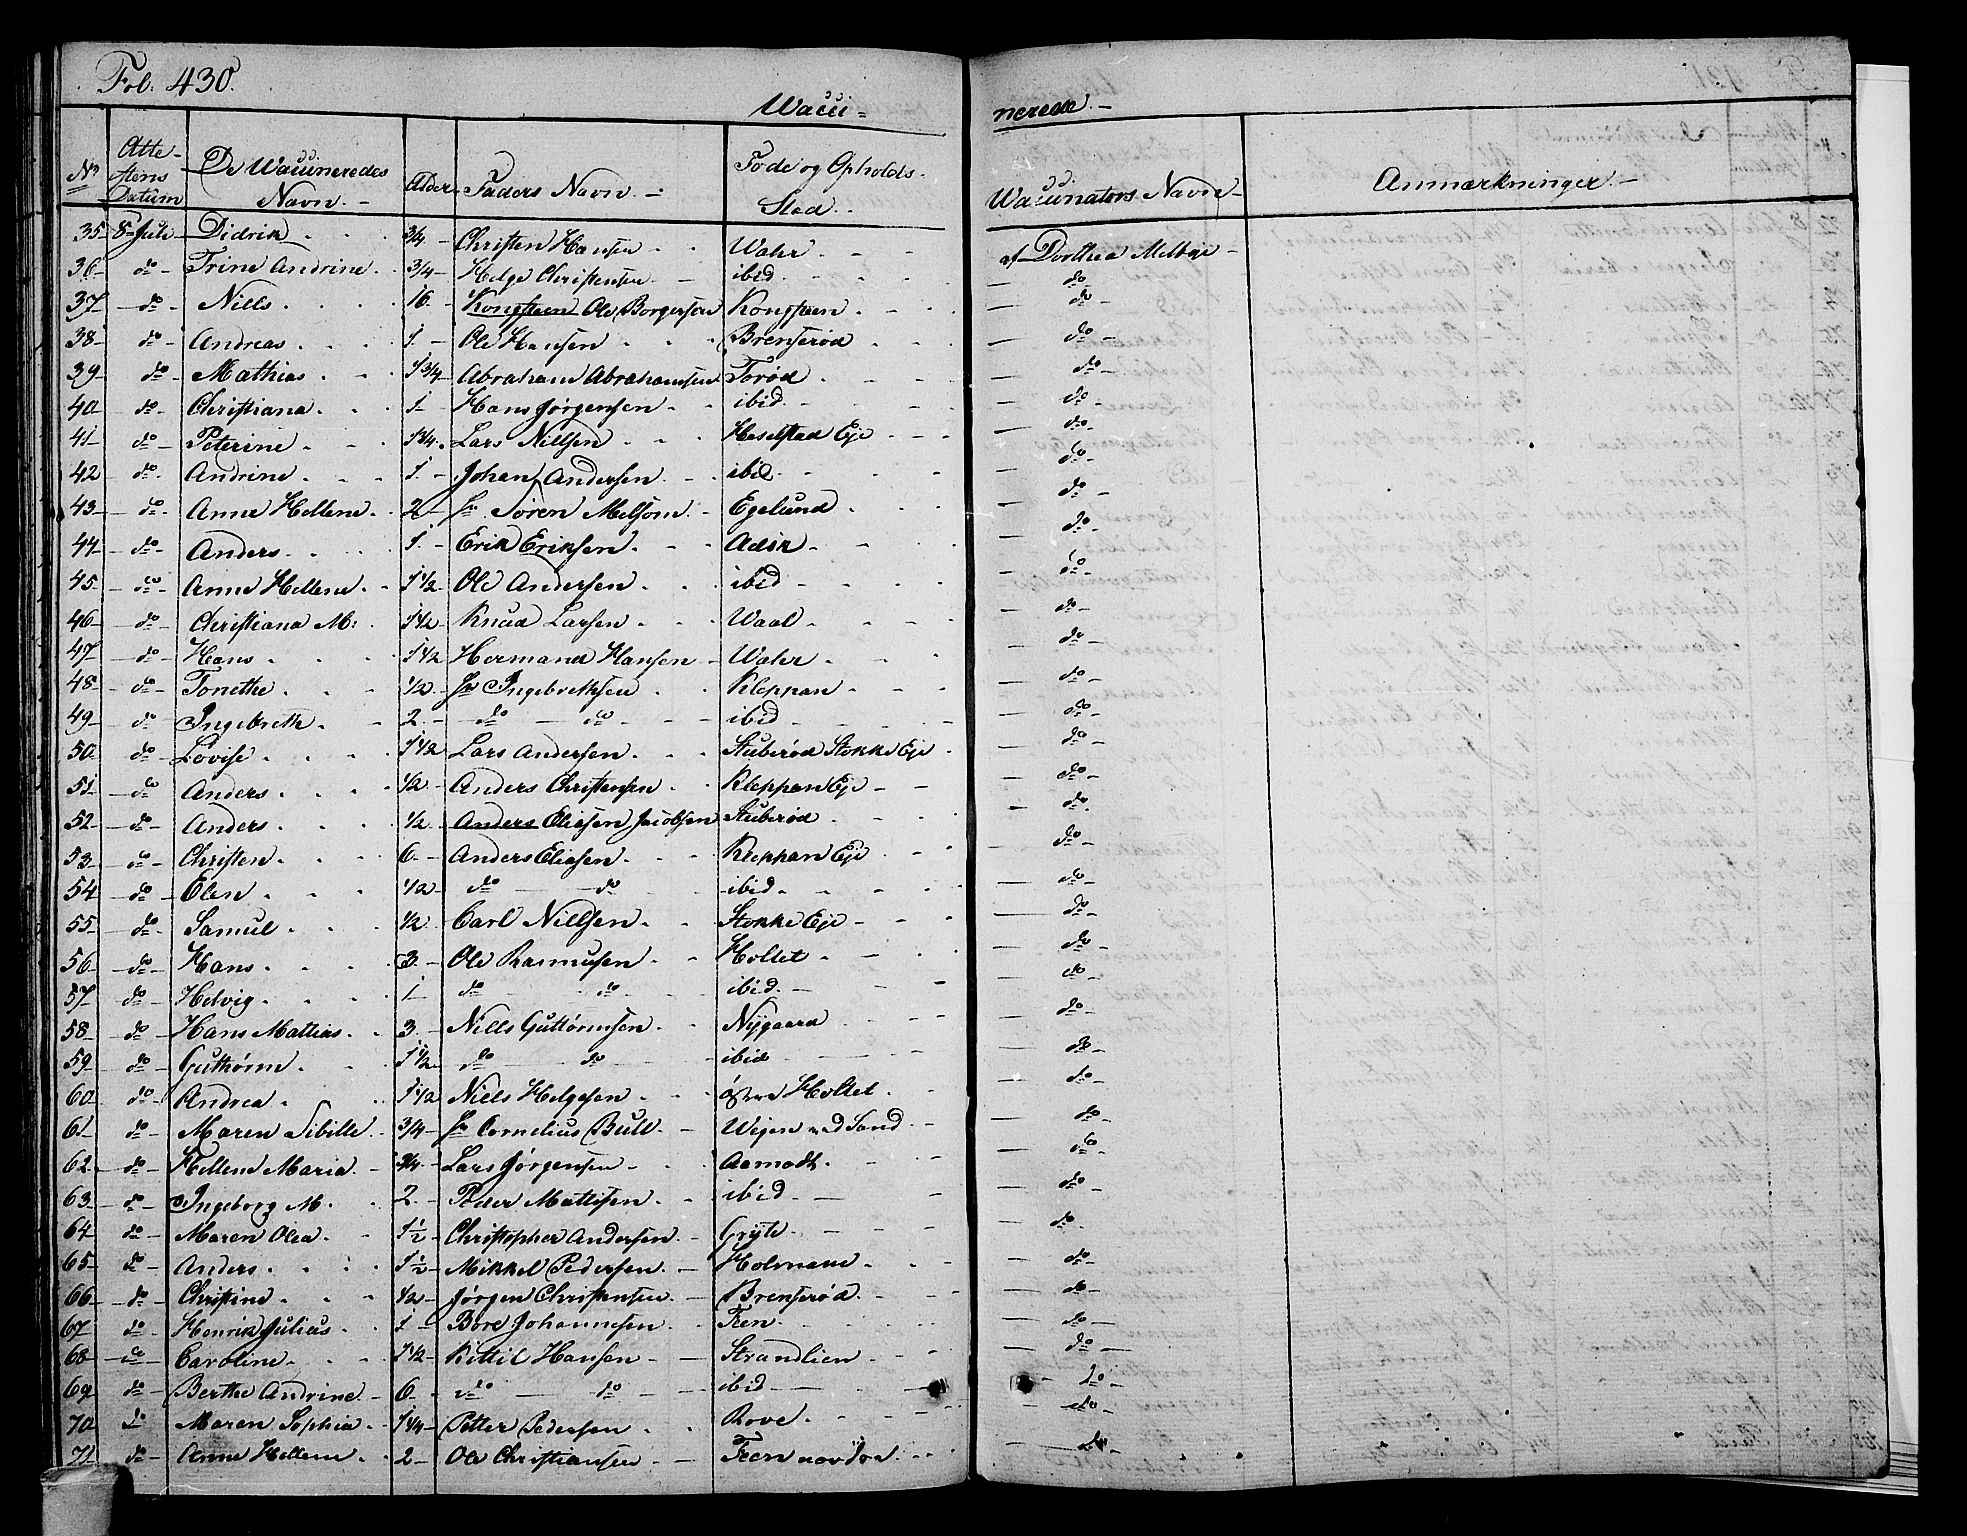 Fol. 430.
Wacci= nerede. –
No Attestens Datum De Waccineredes Navn. – Alder Faders Navn. –: Føde og Opholds Stad. – Waccinators Navn – Anmærkninger. –
35 8 Juli – Didrik 3/4 – Christen Hansen Wahr af Dorthea Melbye –
36 – do – Trine Andrine 3/4 – Helge Christensen ibid – do –
37 – do – Niels 16 Kongsteen Ole Borgersen Kongsteen – do –
38 – do – Andreas 1 – Ole Hansen Brenserød – do –
39 – do – Mathias 1 3/4 – Abraham Abrahamsen Torød – do –
40 – do – Christiana 1 – Hans Jørgensen ibid – do –
41 – do – Peterine 1 3/4 Lars Nillsen Haselstad Eje – do –
42 – do – Andrine 1 – Johan Andersen ibid – do –
43 – do – Anne Hellene 2 – Hr Søren Melsom Egelund – do –
44 – do – Anders 1 – Erik Eriksen Adsik – do –
45 – do – Anne Hellene 1 1/2 Ole Andersen ibid – do –
46 – do – Christiana M: 1 1/2 Knud Larsen Waal – do –
47 – do – Hans 1 1/2 Hermand Hansen – Wahr – do –
48 – do – Tonethe 1/2 – Hr Ingebrethsen Kleppan – do –
49 – do Ingebreth 2 – do – do ibid – do –
50 do – Lovise 1 1/2 Lars Andersen Stuberød Stokke Eje – do –
51 – do Anders 1/2 – Anders Christensen Kleppan Eje – do –
52 – do – Anders 1/2 – Anders Eliesen Jacobsen Stuberød – do
53 – do – Christen 6 – Anders Eliesen Kleppan Eje – do –
54 – do – Elen 1/2 do – do ibid – do –
55 – do – Samuel 1/2 Carl Nillsen Stokke Eje – do –
56 – do – Hans 3 – Ole Rasmusen Holtet – do –
57 – do – Helvig 1 – do – do ibid – do –
58 – do – Hans Mathias 3 – Niells Guttormsen Nygaard – do –
59 do – Guthorm 1 1/2 do – do ibid – do –
60 do – Andrea 1 1/2 Niels Helgesen østre Holtet – do –
61 do – Maren Sibille 3/4 – Hr Cornelius Bull Wejen ved Sand – do –
62 do – Hellene Maria 3/4 – Lars Jørgensen Aamodt – do –
63 – do – Ingeborg M. 2 – Peder Mattisen ibid – do –
64 do – Maren Olea 1 1/2 – Christopher Andersen Gryte – do
65 – do – Anders 1 1/2 – Mikkel Pedersen Holmane – do –
66 – do – Christine 1/2 – Jørgen Christensen Brenserød – do –
67 – do – Henrik Julius 1 – Bore Johannesen Fen – do –
68 – do – Caroline 1 1/2 – Kittil Hansen Strandlien – do –
69 – do – Berthe Andrine – 6 – do – do ibid – do –
70 do Maren Sophia 1 1/4 – Petter Pedersen Rove – do –
71 – do – Anne Hellene 2 – Ole Christiansen Feen – do –